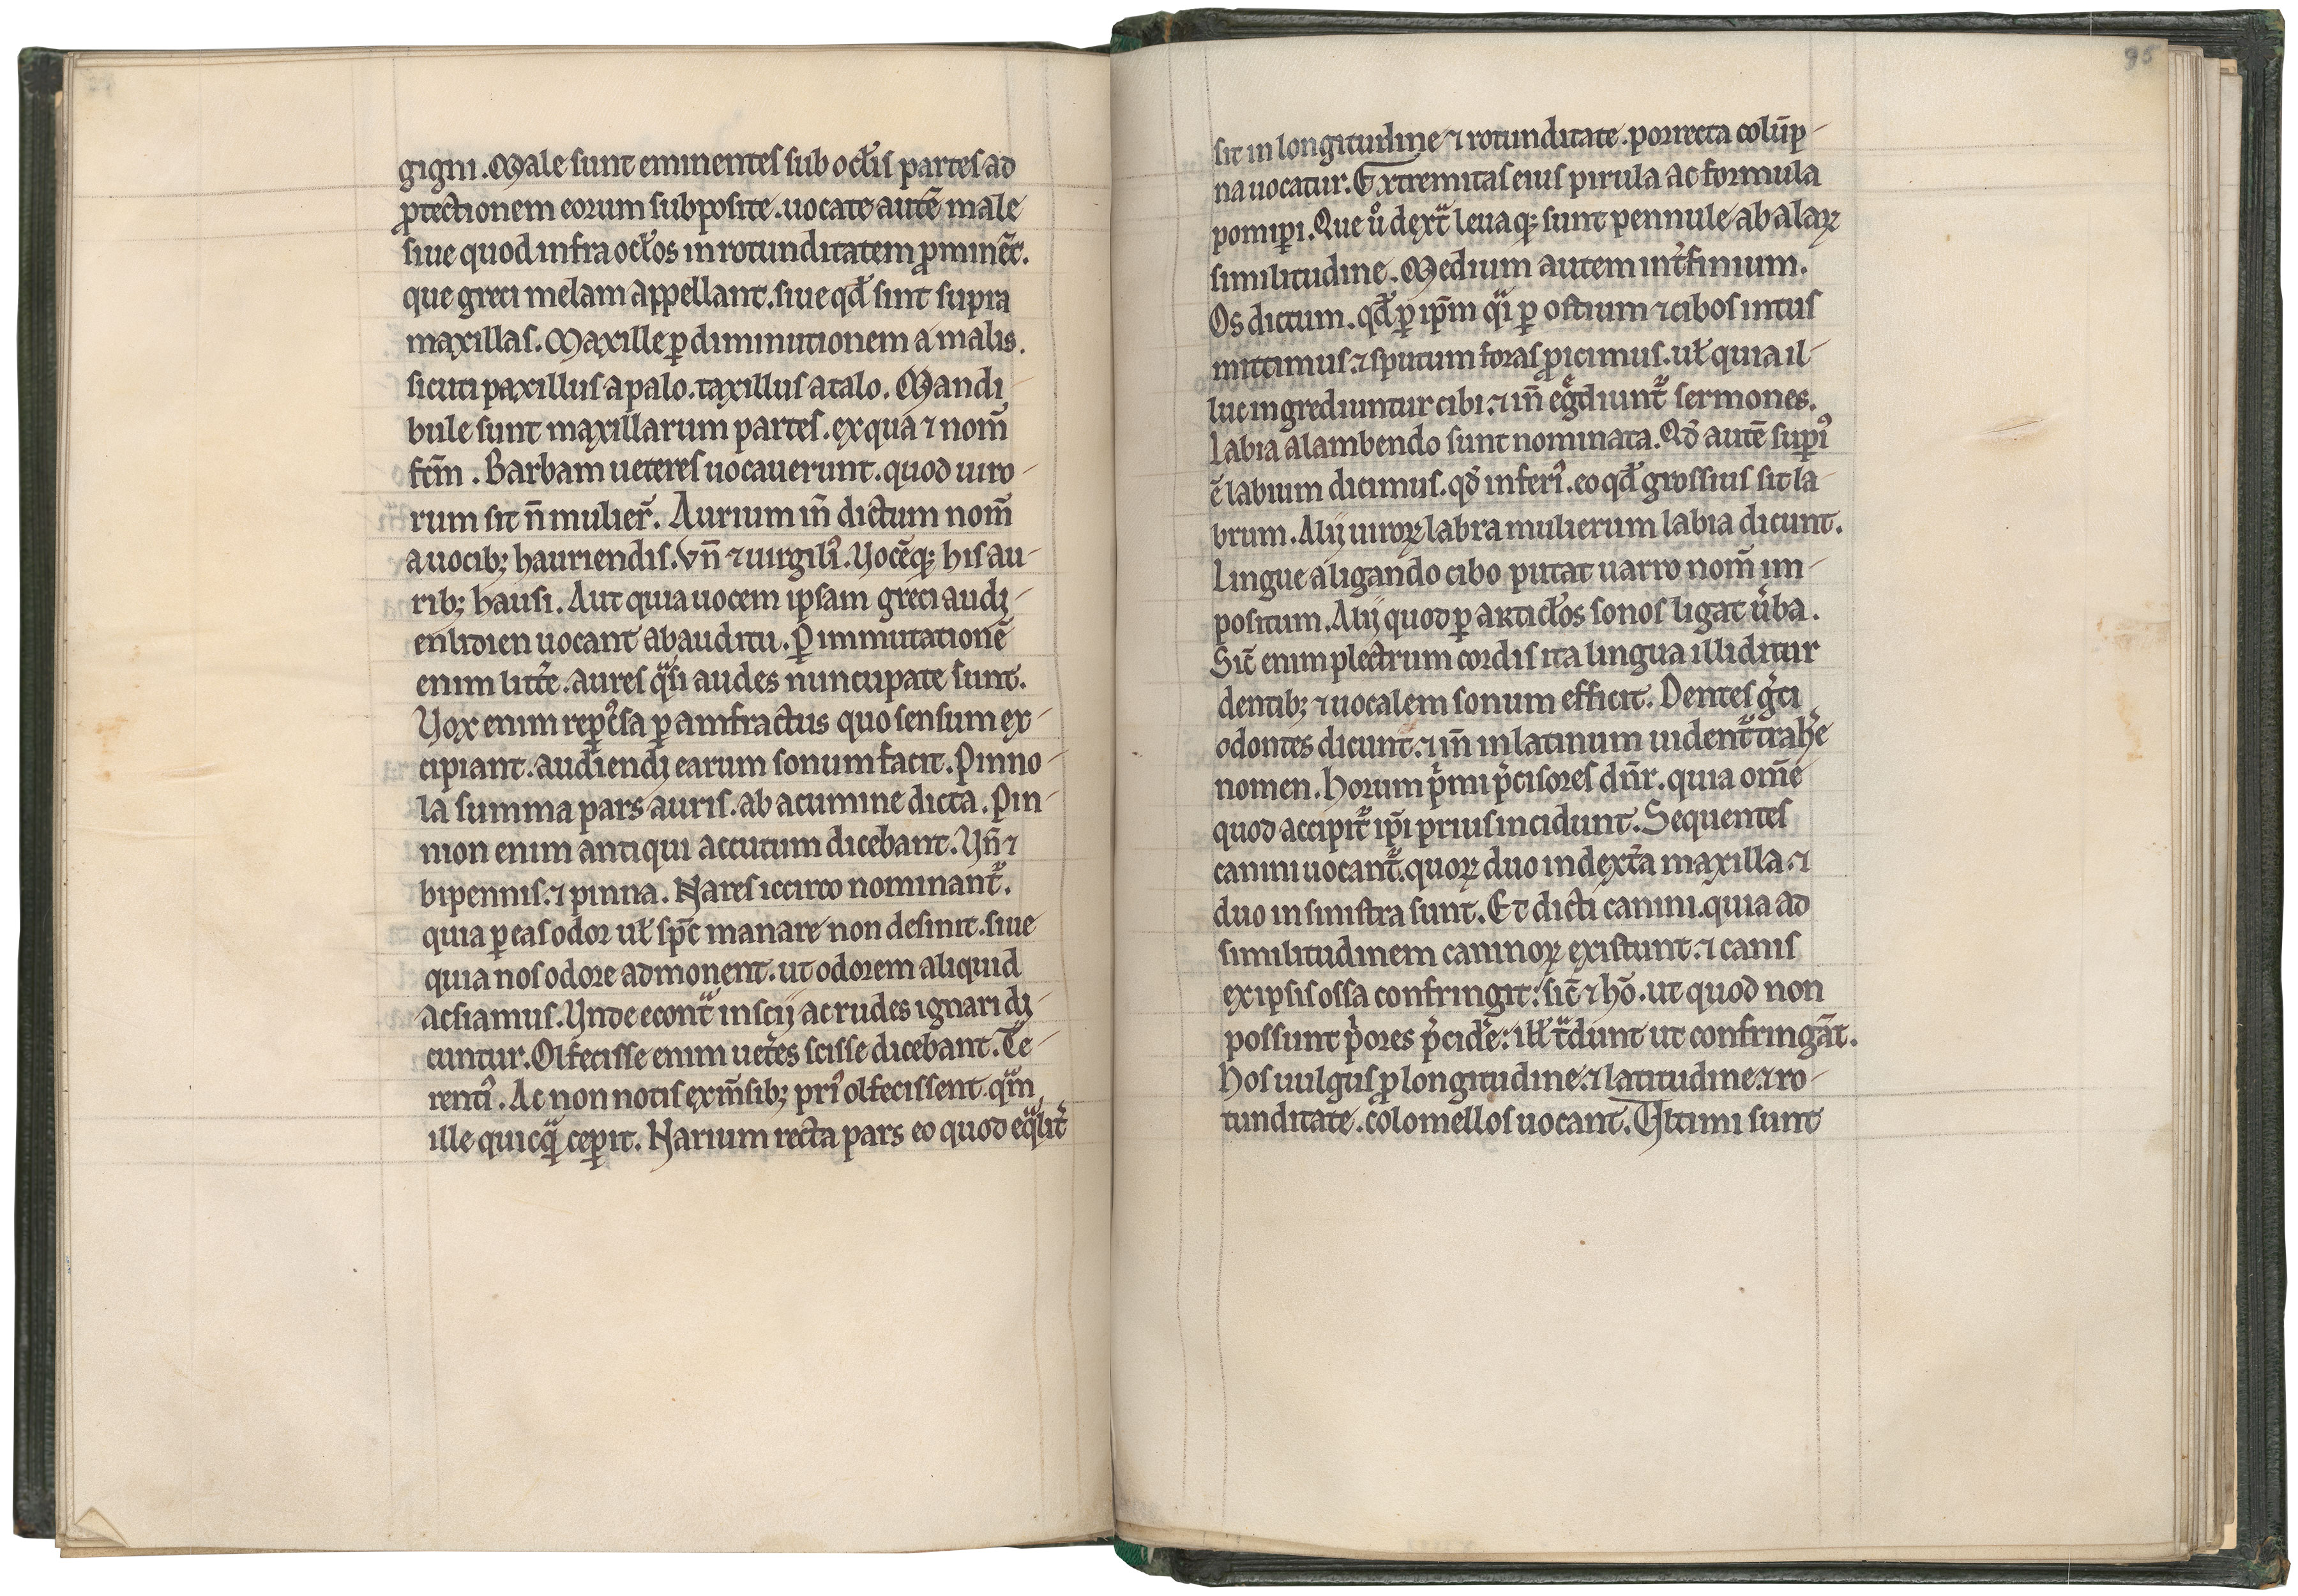 gigni. Male sunt eminentes sub octis partes ad
ꝓtectionem eorum subposite. uocate autē male
siue quod infra ocłos in rotunditatem ꝓminēt.
que greci melam appellant. siue qđ sint supra
maxillas. Maxille ꝑ diminutionem a malis.
sicuti paxillus a palo. taxillus a talo. Mandi
bule sunt maxillarum partes. ex qua ⁊ nom̄
fcm̄. Barbam ueteres uocauerunt. quod uiro-
rum sit n̄ mulier̄. Aurium in̄ dictum nom̄
a uocib; hauriendis. vn̄ ⁊ uirgiliꝰ. Vocēq; his au-
rib; hausi. Aut quia uocem ipsam greci audi-
enidien uocant ab auditu. ꝑ immutationē
enim litt̾e. aures qᵃsi audes nuncupate sunt.
Vox enim reꝑcͥsa ꝑ amfractus quo sensum ex-
cipiant. audiendi earum sonum facit. Pinno-
la summa pars auris. ab acumine dicta. Pin-
nion enim antiqui accutum dicebant. Vn̄ ⁊
bipennis. ⁊ pinna. Nares iccirco nominant᷑.
quia ꝑ eas odor uł spc̄ manare non desinit. siue
quia nos odore admonent. ut odorem aliquid
ac siamus. Vnde econtᵃ inscij ac rudes ignari di-
cuntur. Olfecisse enim uet̾es scisse dicebant. Te-
rentiꝰ. Ac non notis ex m̄sib; priꝰ olfecissent. qᵃm
ille quicqᵃ ceꝑit. Narium recta pars eo quod eqᵃlit̾
95
sit in longitudine ⁊ rotunditate. porrecta colūp-
na uocatur. Extremitas eius pirula ac formula
pomipi. Que uͦ dextᵃ leuaq; sunt pennule ab alaꝝ
similitudine. Medium autem int̾finium.
Os dictum. qđ ꝑ ipm̄ qᵃi ꝑ ostium ⁊ cibos intus
mittimus. ⁊ sputum foras ꝓicimus. uł quia il-
luc ingrediuntur cibi. ⁊ in̄ egͤdiunt᷑ sermones.
Labia a lambendo sunt nominata. Qđ autē supiꝰ
ē labium dicimus. qđ inferiꝰ. eo qđ grossius sit la-
brum. Alij uiroꝝ labra mulierum labia dicunt.
Lingue a ligando cibo putat uarro nom̄ im-
positum. Alij quod ꝑ articłos sonos ligat u̾ba.
Sic̄ enim plectrum cordis ita lingua illiditur
dentib; ⁊ uocalem sonum efficit. Dentes gͥci
odontes dicunt. ⁊ in̄ in latinum uident᷑ trah̾e
nomen. Horum pͥmi p̾cisores dn̄r. quia om̄e
quod accipit᷑ ipi prius incidunt. Sequentes
canini uocant᷑. quoꝝ duo in dext̾a maxilla. ⁊
duo in sinistra sunt. Et dicti canini. quia ad
similitudinem caninoꝝ existunt. ⁊ canis
ex ipsis ossa confringit. sic̄ ⁊ hō. ut quod non
possunt pͥores p̾cid̾e. ill' tᵃdunt ut confringāt.
Hos uulgus ꝓ longitudine. ⁊ latitudine. ⁊ ro-
tunditate. colomellos uocant. Vltimi sunt